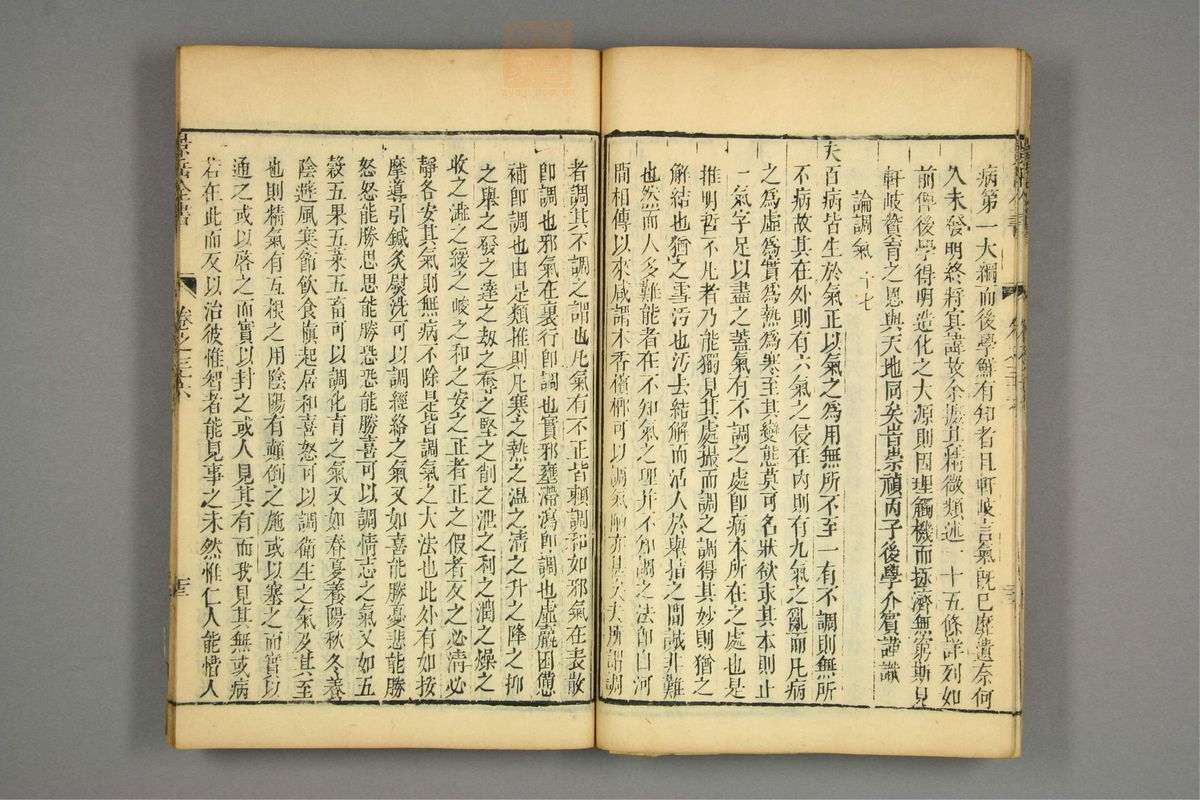 病第一大綱而後學鮮有知者且軒岐言氣既已靡遺奈何
久未發明終將冥諱故余摭其精微類述一十五條詳列如
前俾後學得明造化之大源則因理觸機而拯濟無窮斯見
軒岐贊育之恩與天地同矣旹崇禎丙子後學介賓謹識
論調氣 十七
夫百病皆生於氣正以氣之為用無所不至一有不調則無所
不病故其在外則有六氣之侵在內則有九氣之亂而凡病
之為虛為實為熱為寒至其變態莫可名狀欲求其本則止
一氣字足以盡之蓋氣有不調之處即病本所在之處也是
推明哲不凡者乃能獨見其處撮而調之調得其妙則猶之
解結也猶之雪污也污去結解而活人於舉指之間誠非難
也然而人多難能者在不知氣之理并不知調之法即自河
間相傳以來咸謂木香檳榔可以調氣陋亦甚矣夫所謂調
者調其不調之謂也凡氣有不正皆賴調和如邪氣在表散
即調也邪氣在裏行即調也實邪壅滯瀉即調也虛羸困憊
補即調也由是類推則凡寒之熱之溫之清之升之降之抑
之舉之發之達之劫之奪之堅之削之泄之利之潤之燥之
收之澁之緩之峻之和之安之正者正之假者反之必清必
靜各安其氣則無病不除是皆調氣之大法也此外有如按
摩導引鍼灸熨洗可以調經絡之氣又如喜能勝憂悲能勝
怒怒能勝思思能勝恐恐能勝喜可以調情志之氣又如五
穀五果五菜五畜可以調化育之氣又如春夏養陽秋冬養
陰避風寒節飲食慎起居和喜怒可以調衛生之氣及其至
也則精氣有互根之用陰陽有顛倒之施或以塞之而實以
通之或以啓之而實以封之或人見其有而我見其無或病
若在此而反以治彼惟智者能見事之未然惟仁人能惜人
景岳全書
卷之三十六